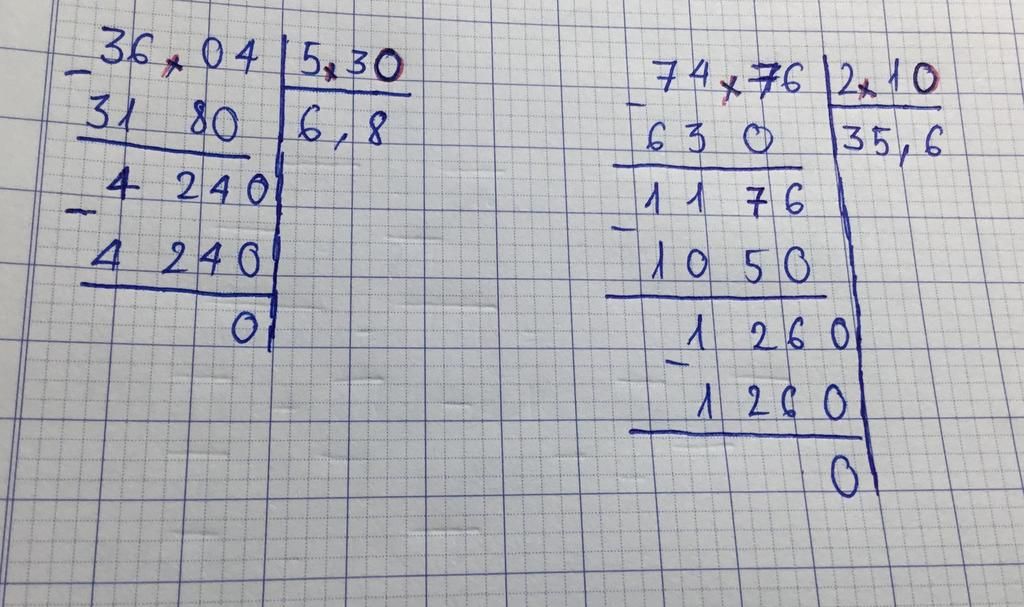 36,04 5,30
- 31 80 6,8
4 240
- 4 240
0
74,76 2,10
- 63 0 35,6
11 76
- 10 50
1 260
- 1 260
0